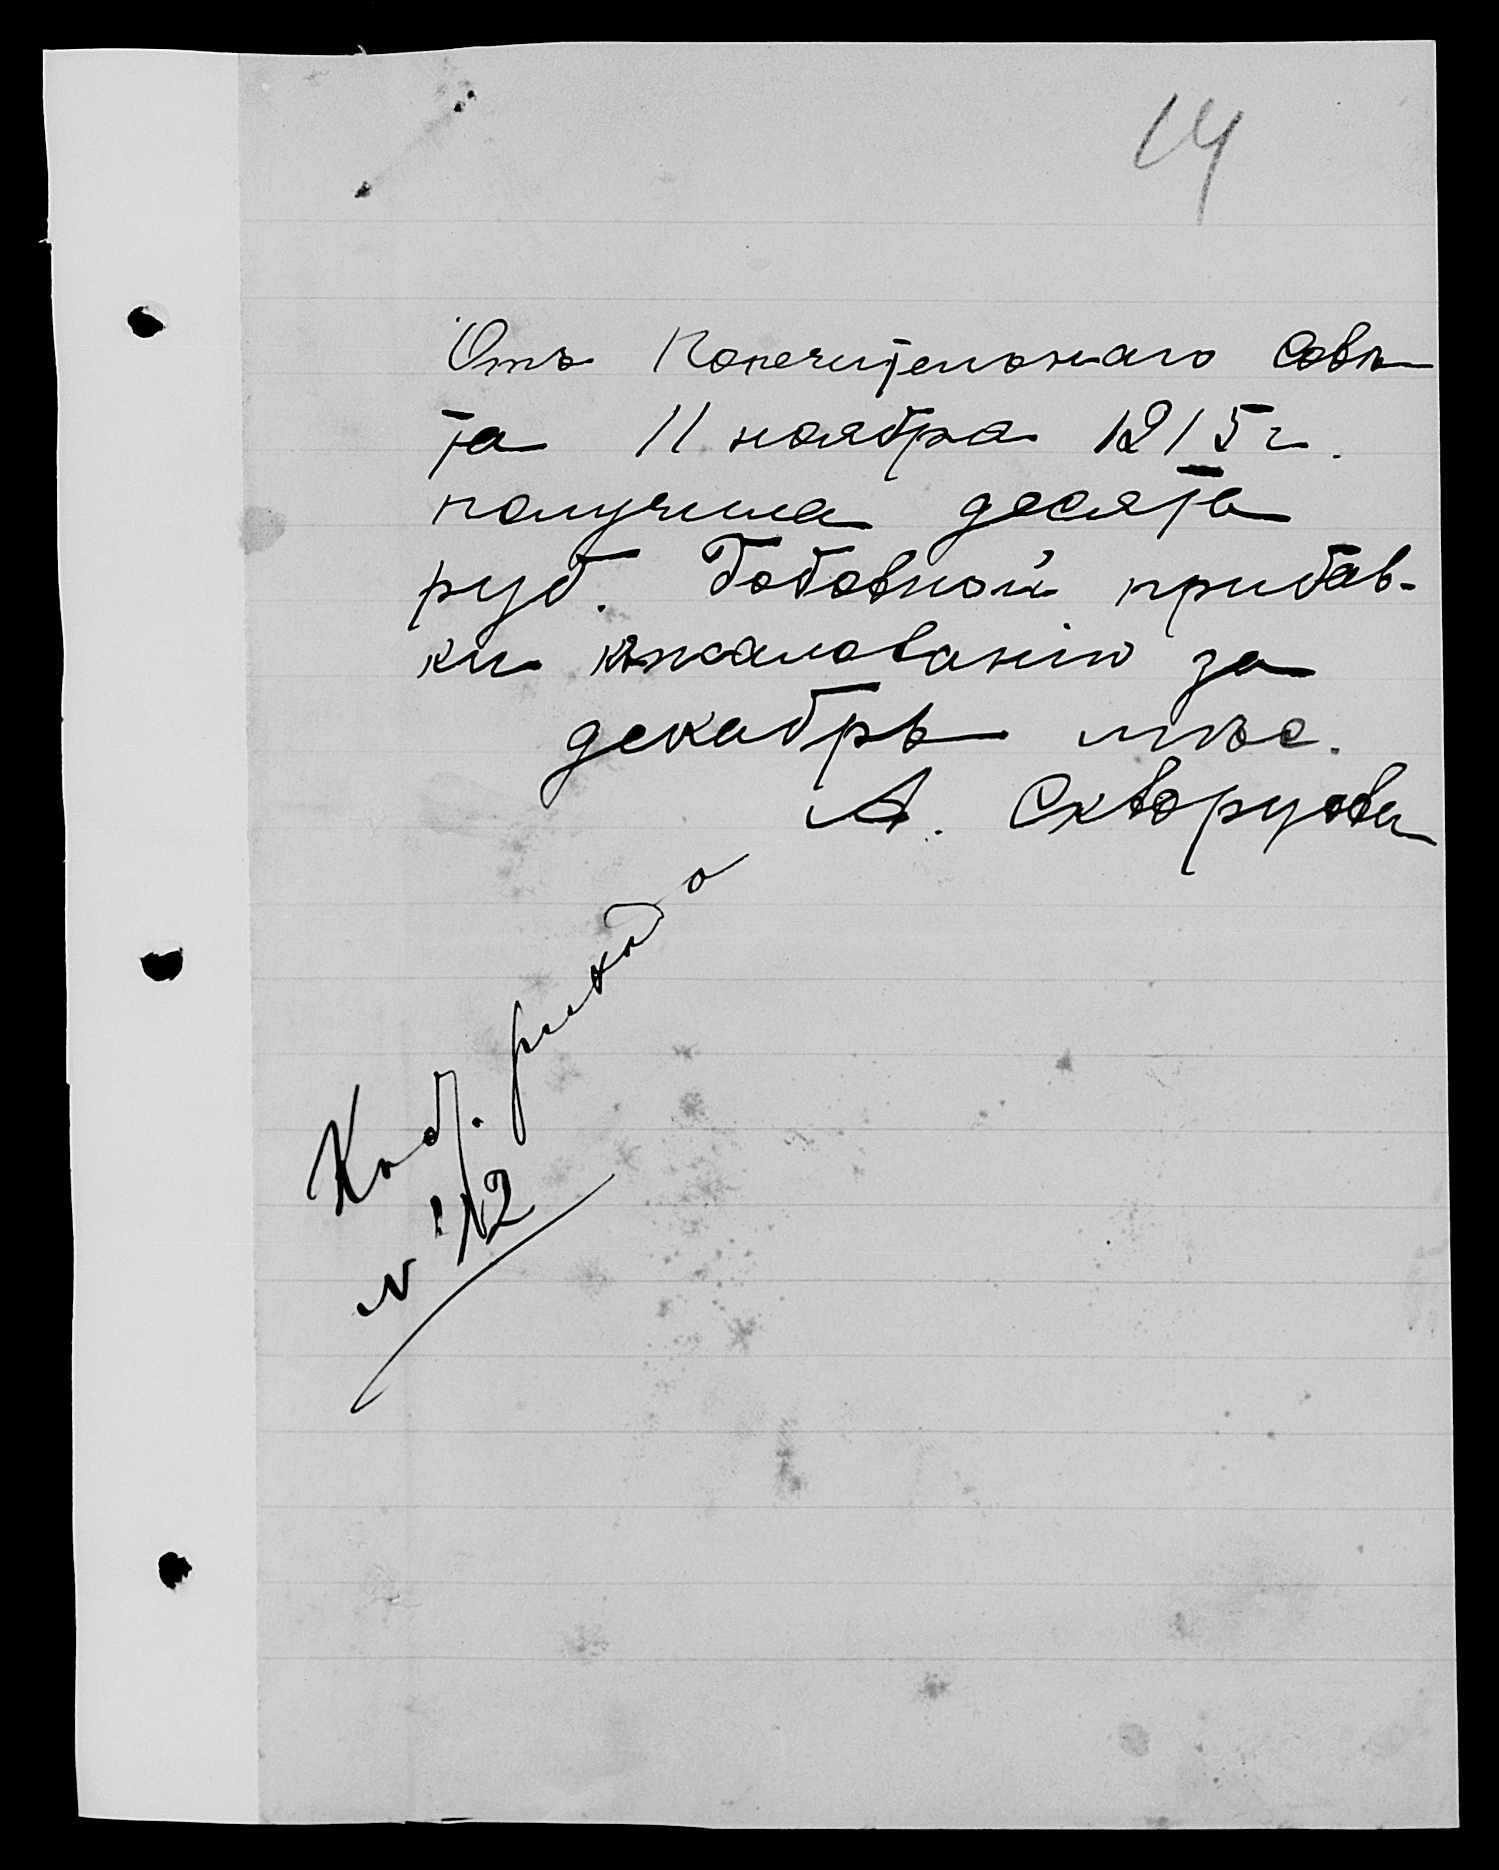 14
Отъ Попечительнаго Совѣ
та 11 ноября 1915 г.
получила десять
руб. Годовной прибав-
ки к жалованію за
декабрь мѣс.
А. Скворцова
№ 12